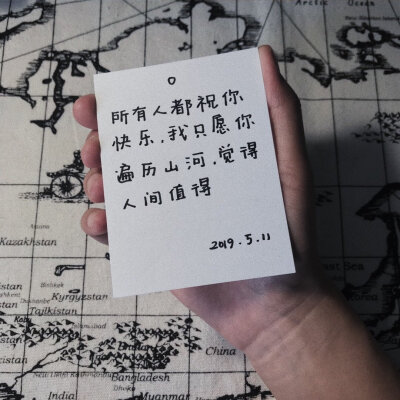 所有人都祝你
快乐,我只愿你
遍历山河,觉得
人间值得
2019.5.11
Arctic
Ocean
Kazakhstan
Bishkek
Kyrgyzstan
Tajikistan
China
Bangladesh
India
Myanmar